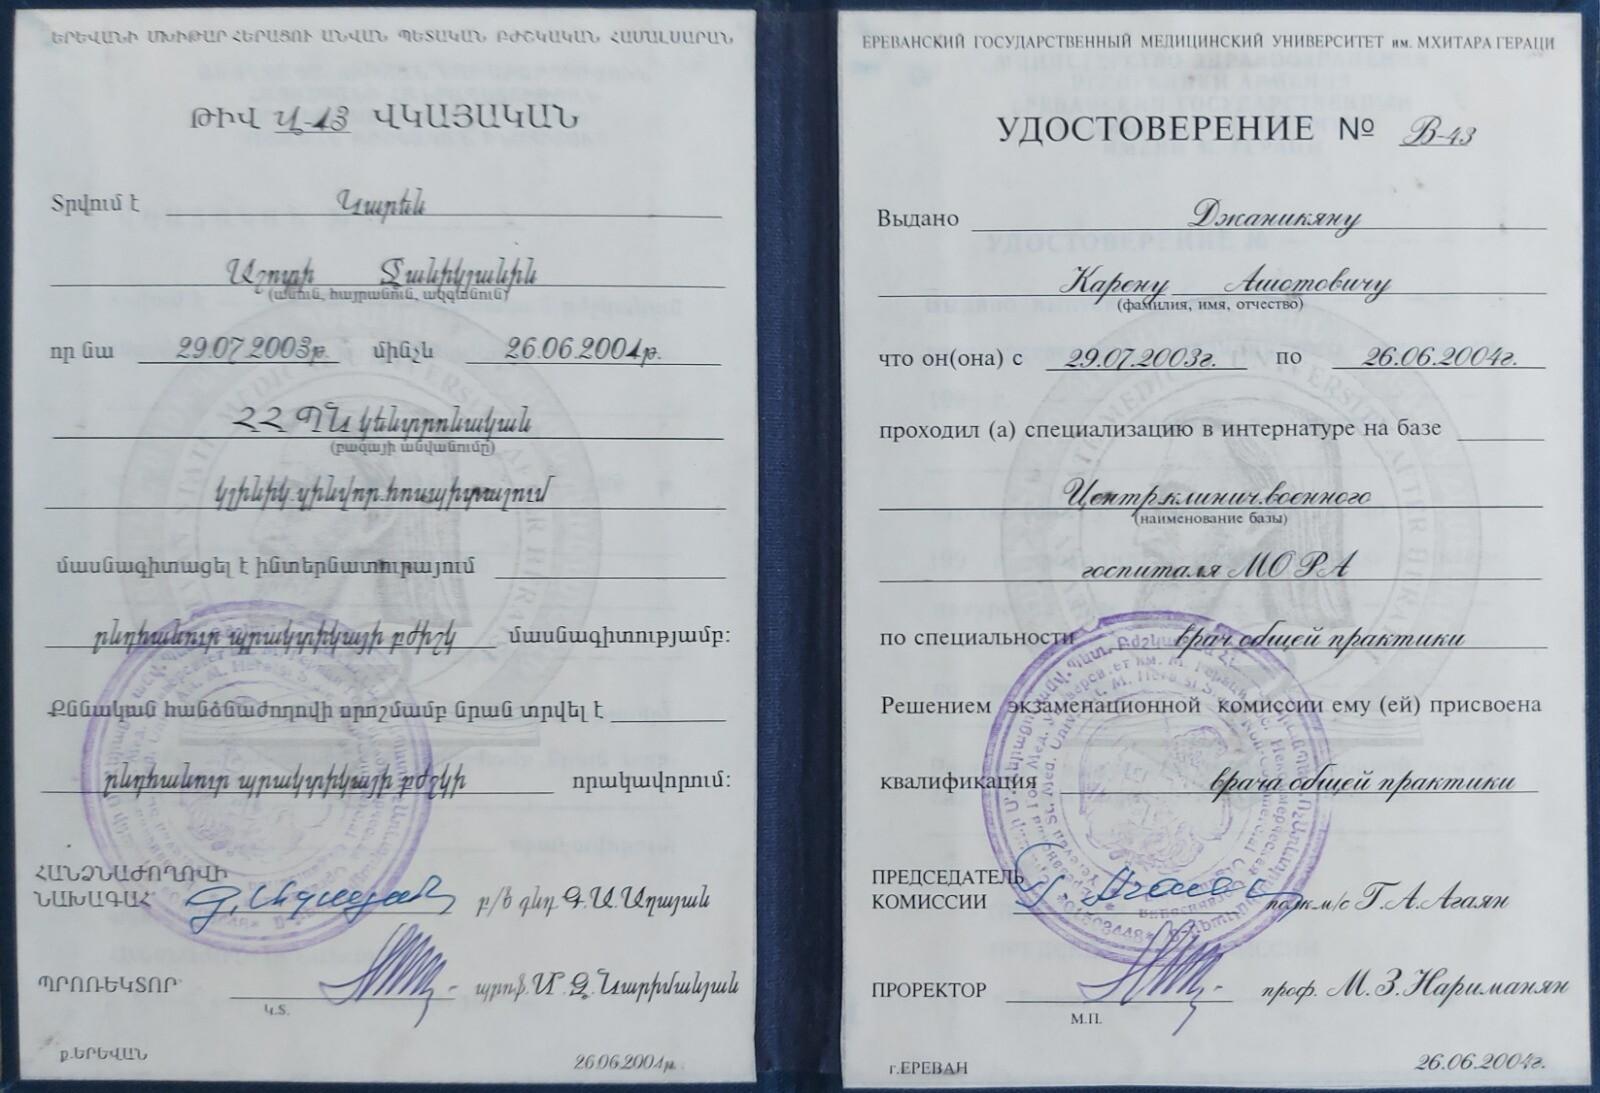 ԵՐԵՎԱՆԻ ՄԽԻԹԱՐ ՀԵՐԱՑՈՒ ԱՆՎԱՆ ՊԵՏԱԿԱՆ ԲԺՇԿԱԿԱՆ ՀԱՄԱԼՍԱՐԱՆ
ԹԻՎ Վ-43 ՎԿԱՅԱԿԱՆ
Տրվում է Կարեն
Աշոտի Ջանիկյանին
(անուն, հայրանուն, ազգանուն)
որ նա 29.07.2003թ. մինչև 26.06.2004թ.
ՀՀ ՊՆ կենտրոնական
(բազայի անվանումը)
կլինիկ.զինվոր.հոսպիտալում
մասնագիտացել է ինտերնատուրայում
ընդհանուր պրակտիկայի բժիշկ մասնագիտությամբ:
Քննական հանձնաժողովի որոշմամբ նրան տրվել է
ընդհանուր պրակտիկայի բժշկի որակավորում:
ՀԱՆՁՆԱԺՈՂՈՎԻ
ՆԱԽԱԳԱՀ բ/ծ գնդ Գ.Ա.Աղայան
ՊՐՈՌԵԿՏՈՐ պրոֆ.Մ.Զ.Նարիմանյան
Կ.Տ.
ք.ԵՐԵՎԱՆ 26.06.2004թ.
ЕРЕВАНСКИЙ ГОСУДАРСТВЕННЫЙ МЕДИЦИНСКИЙ УНИВЕРСИТЕТ им. МХИТАРА ГЕРАЦИ
УДОСТОВЕРЕНИЕ № В-43
Выдано Джаникяну
Карену Ашотовичу
(фамилия, имя, отчество)
что он(она) с 29.07.2003г. по 26.06.2004г.
проходил (а) специализацию в интернатуре на базе
Центр.клинич.военного
(наименование базы)
госпиталя МО РА
по специальности врач общей практики
Решением экзаменационной комиссии ему (ей) присвоена
квалификация врача общей практики
ПРЕДСЕДАТЕЛЬ
КОМИССИИ полк м/с Г.А.Агаян
ПРОРЕКТОР проф. М.З.Нариманян
М.П.
г.ЕРЕВАН 26.06.2004г.